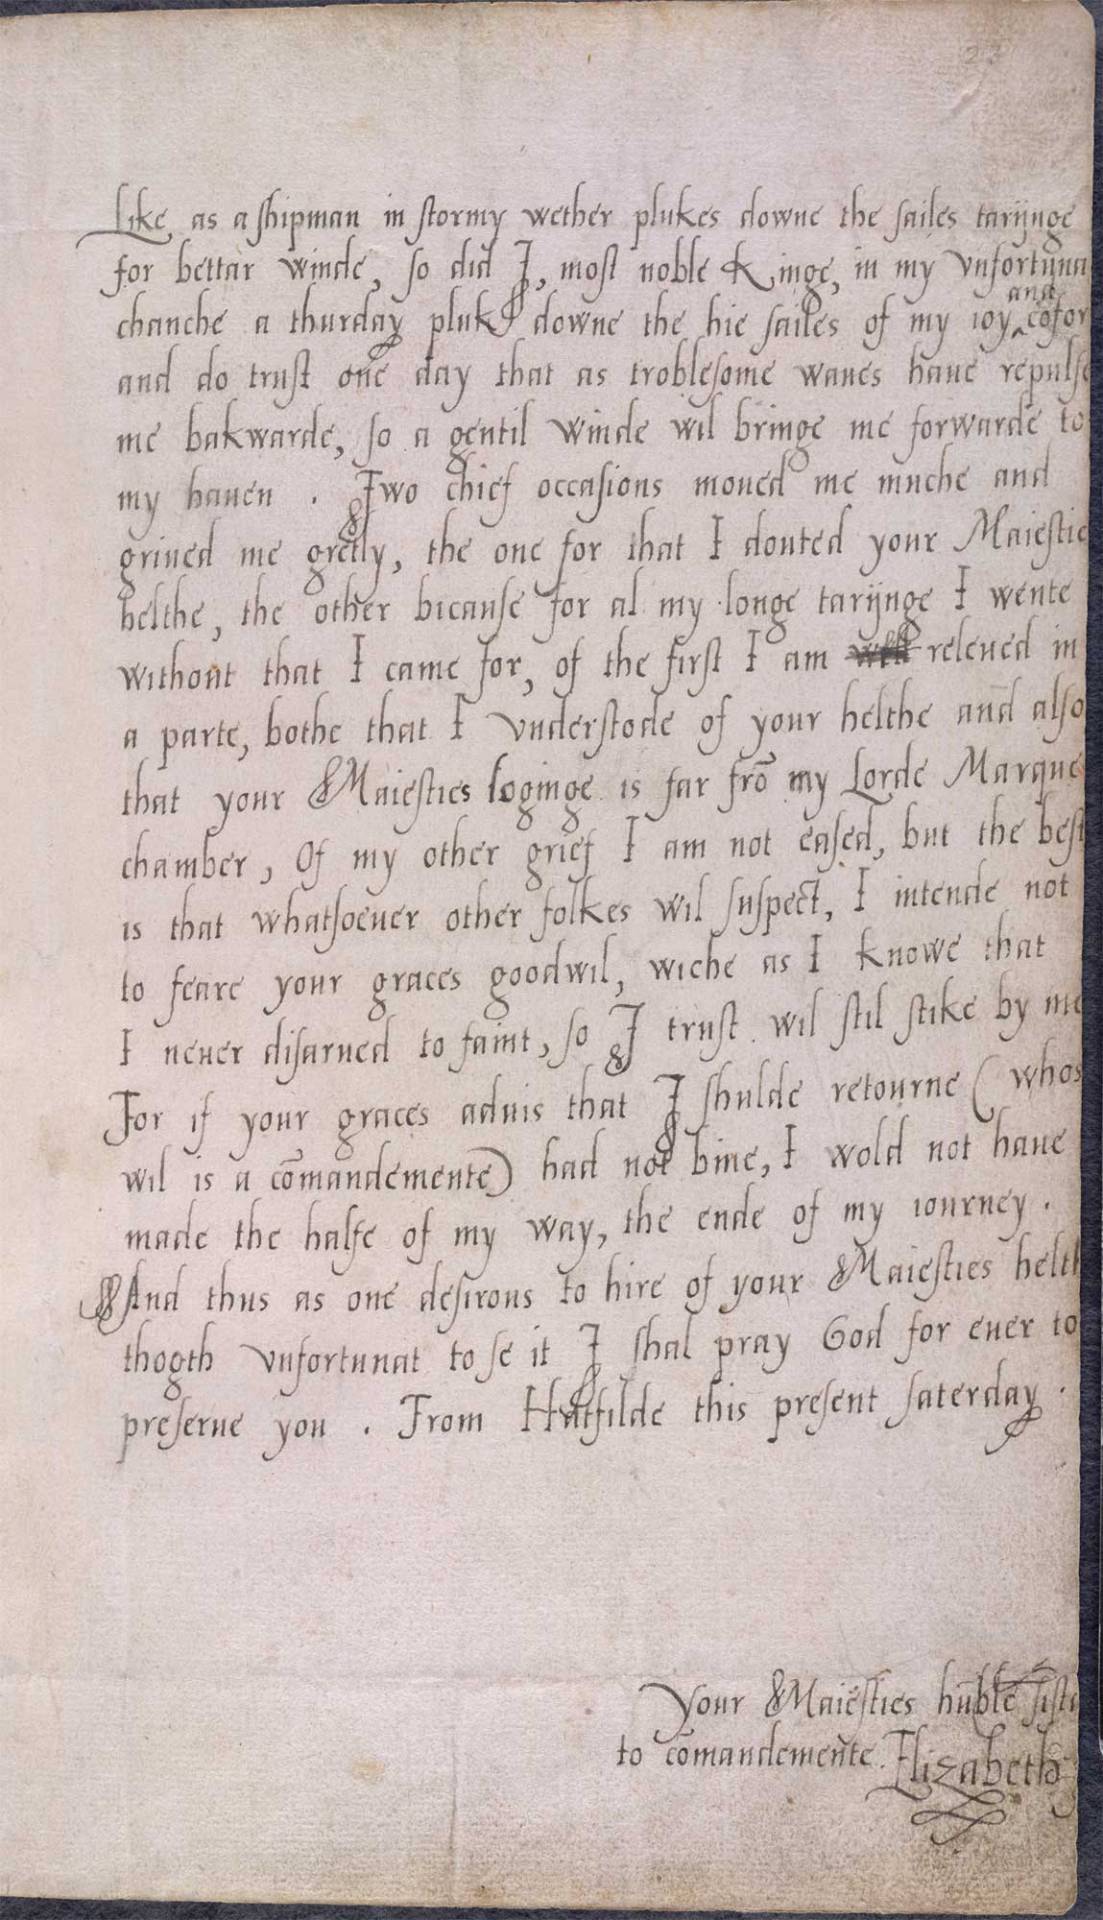 Like as a shipman in stormy wether plukes downe the sailes tarijnge
for bettar winde, so did I, most noble Kinge, in my vnfortuna
chanche a thurday pluk downe the hie sailes of my ioy and cõfor
and do trust one day that as troblesome waues haue repulse
me bakwarde, so a gentil winde wil bringe me forwarde to
my hauen. Two chief occasions moued me muche and
griued me gretly, the one for that I douted your Maiestie
helthe, the other bicause for al my longe tarijnge I wente
without that I came for, of the first I am releued in
a parte, bothe that I vnderstode of your helthe and also
that your Maiesties loginge is far frõ my Lorde Marques
chamber, Of my other grief I am not eased, but the best
is that whatsoeuer other folkes wil suspect, I intende not
to feare your graces goodwil, wiche as I knowe that
I neuer disarued to faint, so I trust wil stil stike by me
For if your graces aduis that I shulde retourne (whos
wil is a cõmandemente) had not bine, I wold not haue
made the halfe of my way, the ende of my iourney.
And thus as one desirous to hire of your Maiesties helth
thogth vnfortunat to se it I shal pray God for euer to
preserue you. From Hatfilde this present saterday.
Your Maiesties hũble sistar
to cõmandemente. Elizabeth